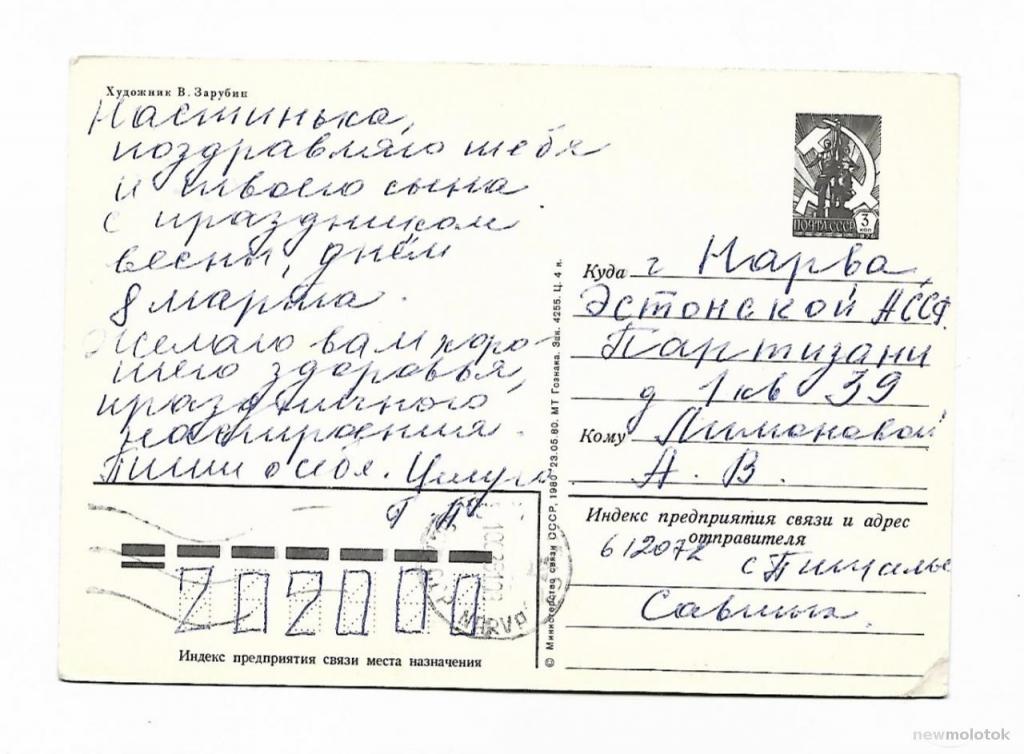 Художник В. Зарубин
Настинька,
поздравляю тебя
и твоего сына
с праздником
весны, днём
8 марта.
Желаю вам хоро-
шего здоровья,
праздничного
настроения.
Пиши о себе. Целую
Т. П.
ПОЧТА СССР
3
КОП
Куда г Нарва,
Эстонской АССР
Партизани
д 1 кв 39
Кому Лимоновой
А. В.
Индекс предприятия связи и адрес
отправителя
612072
с Пищалье
Савиных.
202000
NARVA
Индекс предприятия связи места назначения
© Министерство связи СССР, 1980 23.05.80. МТ Гознака. Зак. 4255. Ц. 4 к.
newmolotok